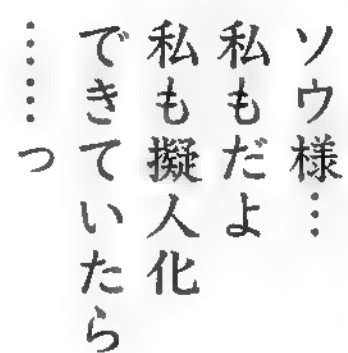 ソウ様…
私もだよ
私も擬人化
できていたら
……っ